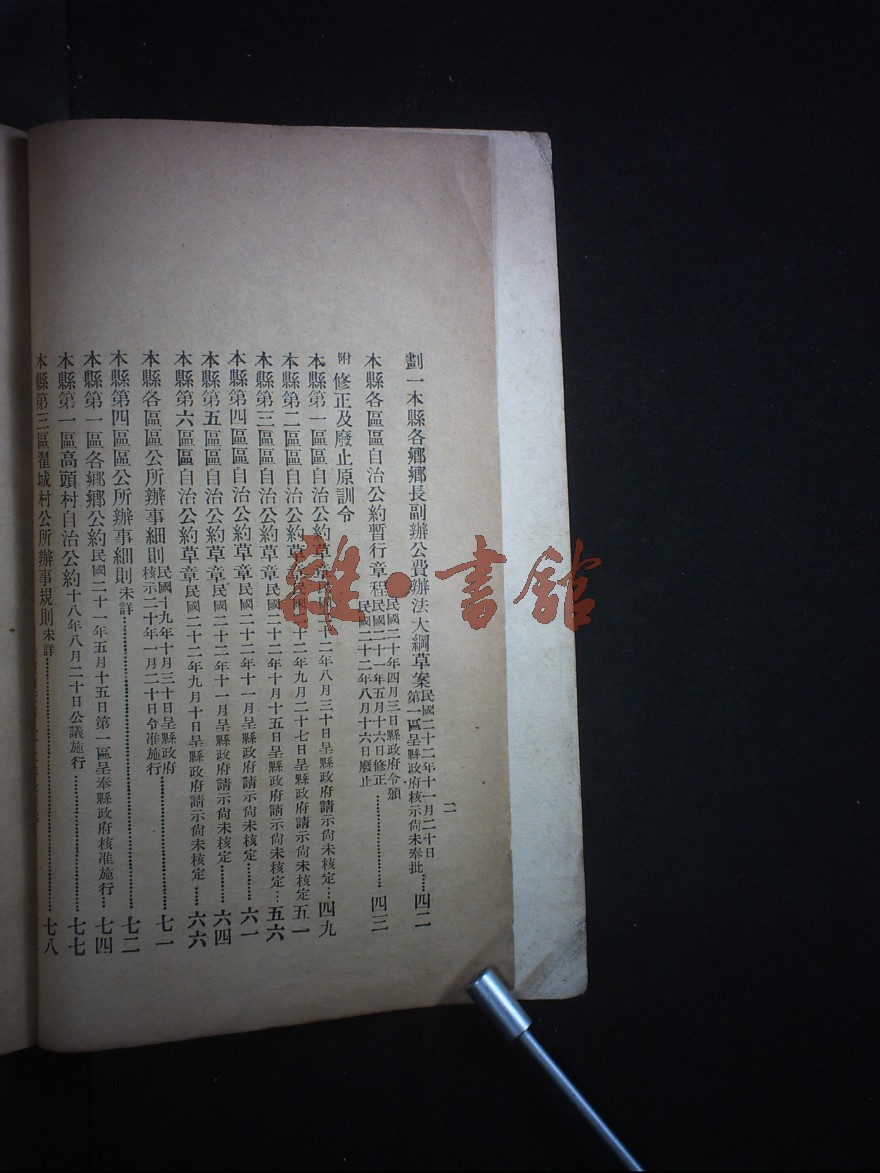 二
劃一本縣各鄉鄉長副辦公費辦法大綱草案民國二十二年十一月二十日第一區呈縣政府核示尙未奉批…四二
本縣各區區自治公約暫行章程民國二十年四月三日縣政府令頒民國二十一年五月十六日修正民國二十二年八月十六日廢止…四三
附 修正及廢止原訓令
本縣第一區區自治公約草章民國二十二年八月三十日呈縣政府請示尙未核定…四九
本縣第二區區自治公約草章民國二十二年九月二十七日呈縣政府請示尙未核定五一
本縣第三區區自治公約草章民國二十二年十月十五日呈縣政府請示尙未核定…五六
本縣第四區區自治公約草章民國二十二年十一月呈縣政府請示尙未核定…六一
本縣第五區區自治公約草章民國二十二年十一月呈縣政府請示尙未核定…六四
本縣第六區區自治公約草章民國二十二年九月十日呈縣政府請示尙未核定…六六
本縣各區區公所辦事細則民國十九年十月三十日呈縣政府核示二十年一月二十日令准施行…七一
本縣第四區區公所辦事細則未詳…七二
本縣第一區各鄉鄉公約民國二十一年五月十五日第一區呈奉縣政府核准施行…七四
本縣第一區高頭村自治公約十八年八月二十日公議施行…七七
本縣第三區翟城村公所辦事規則未詳…七八
雜·書館